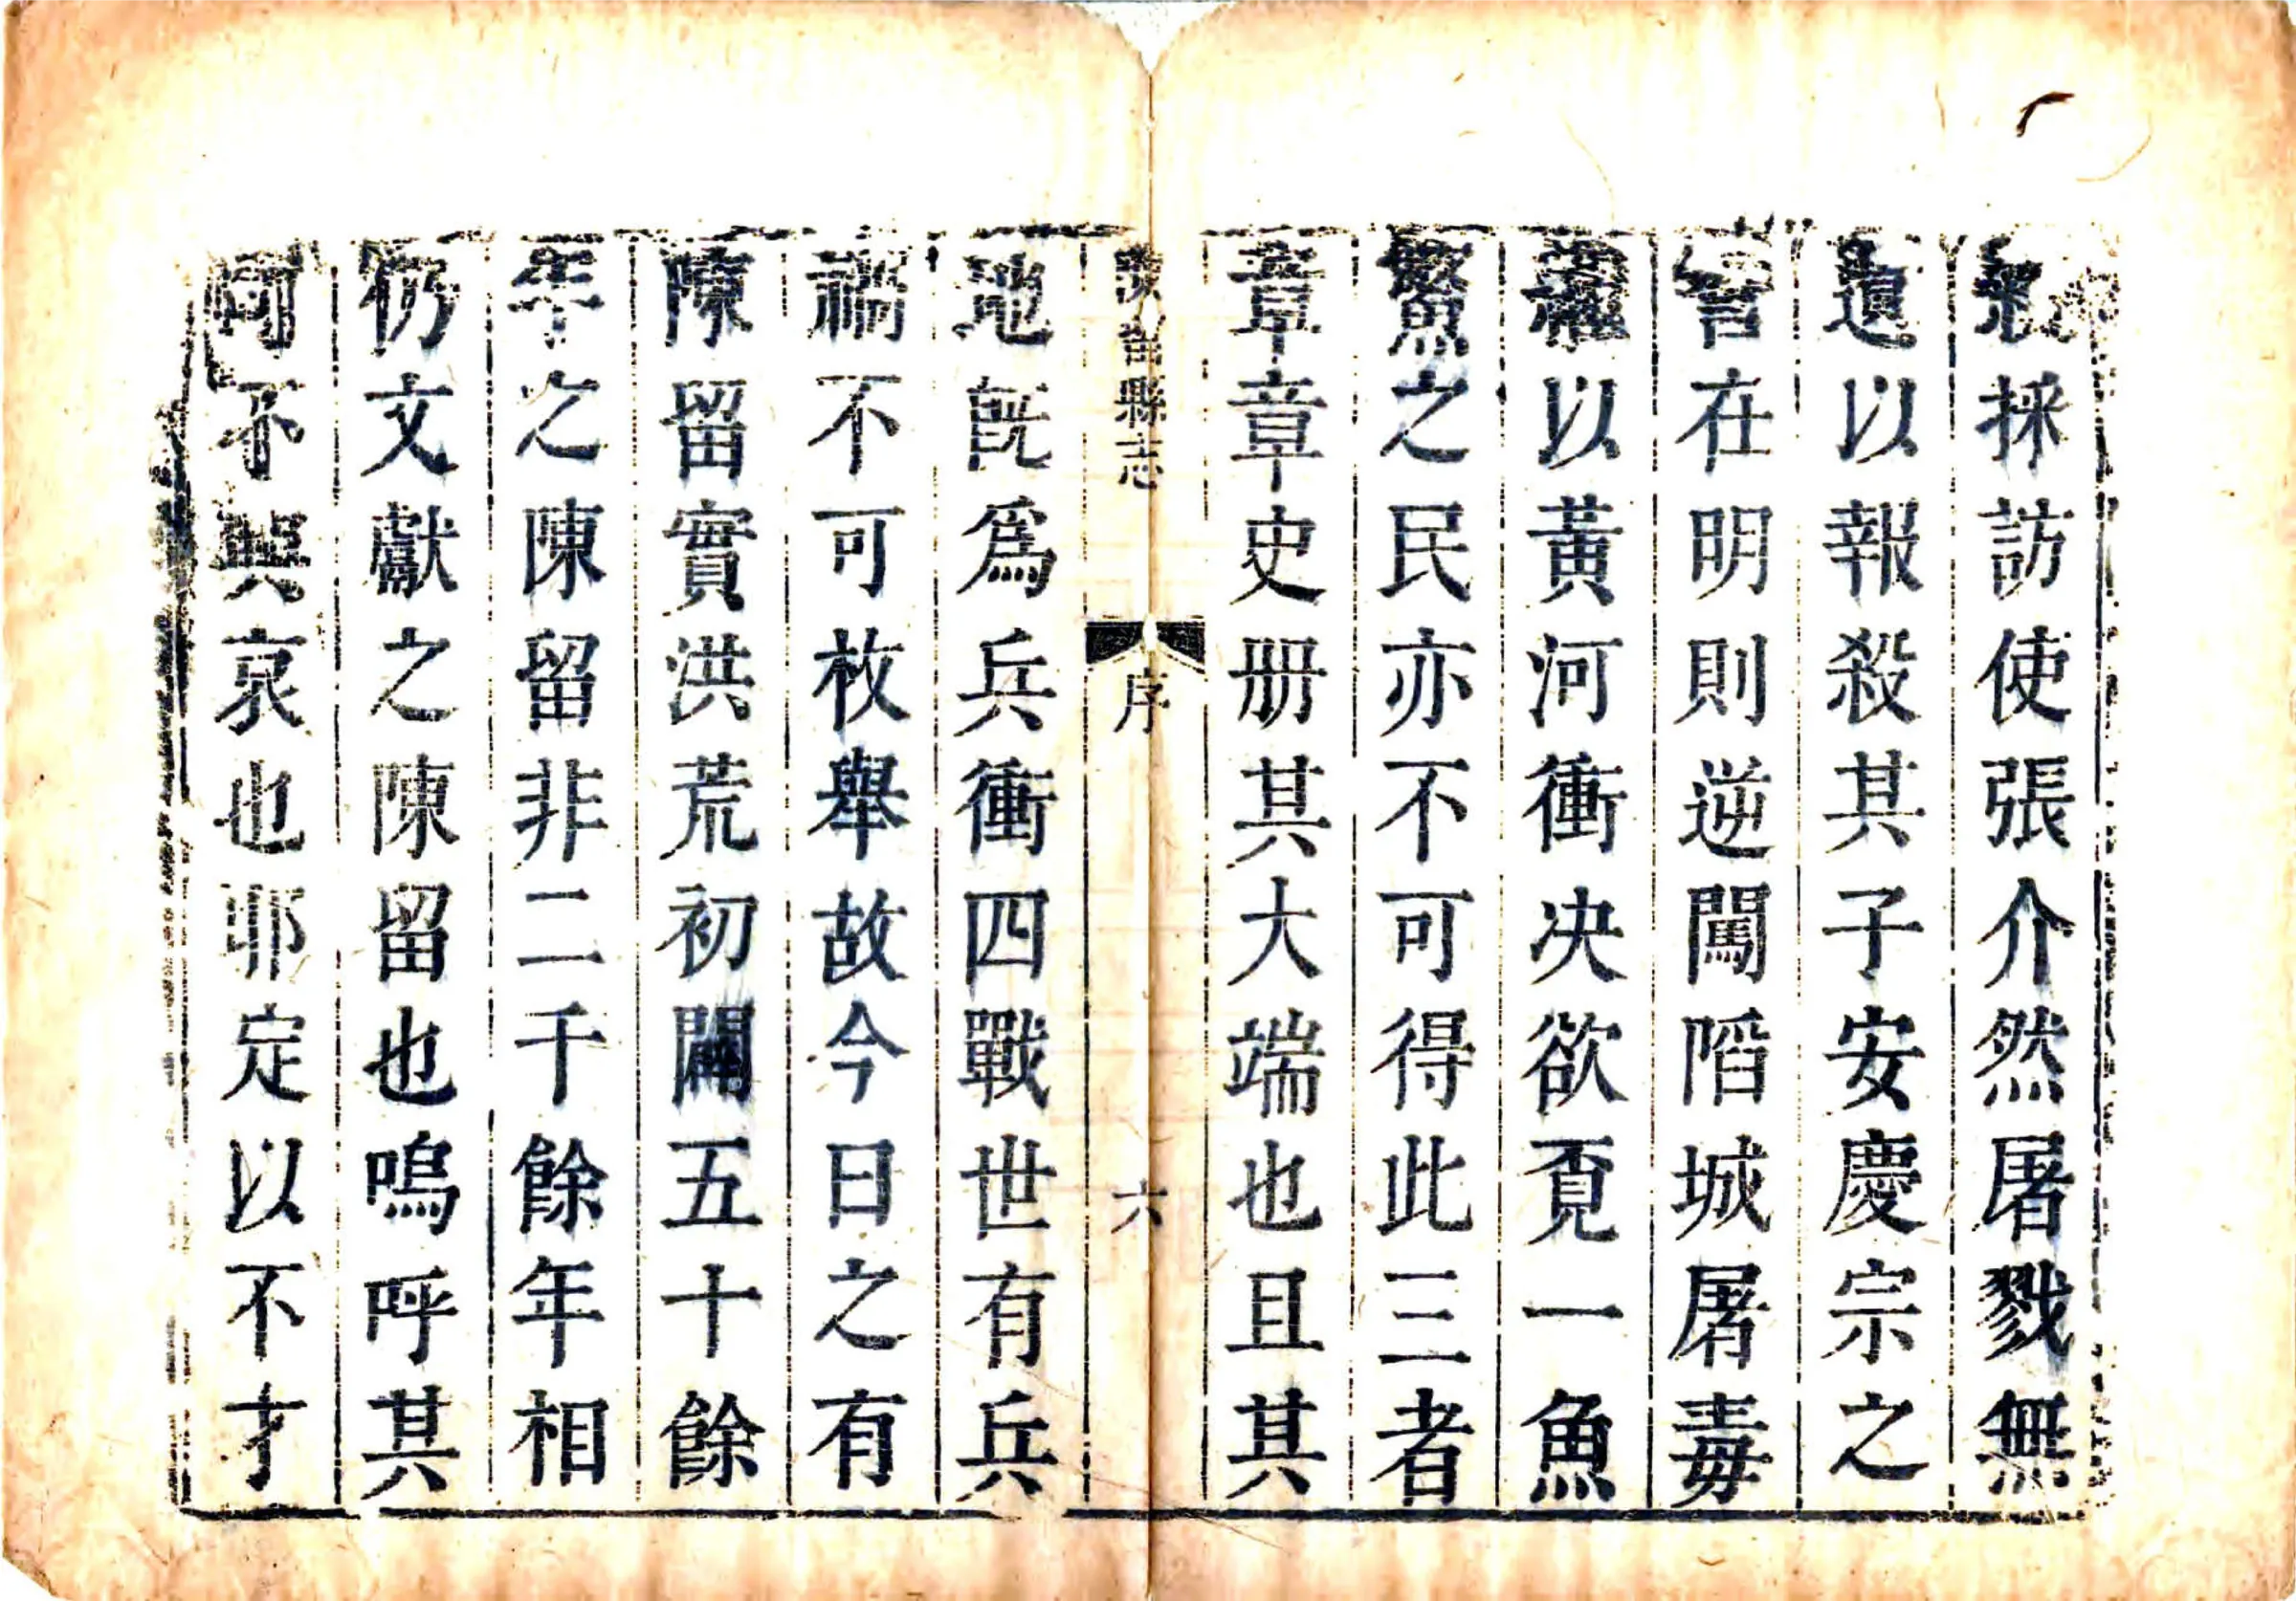 採訪使張介然屠戮無
遺以報殺其子安慶宗之
在明則逆闖陷城屠毒
以黃河衝决欲覔一魚
鱉之民亦不可得此三者
章章史册其大端也且其
陳留縣志 序 六
地旣爲兵衝四戰世有兵
禍不可枚舉故今日之有
陳留實洪荒初闢五十餘
年之陳留非二千餘年相
仍文獻之陳留也嗚呼其
不興哀也耶定以不才